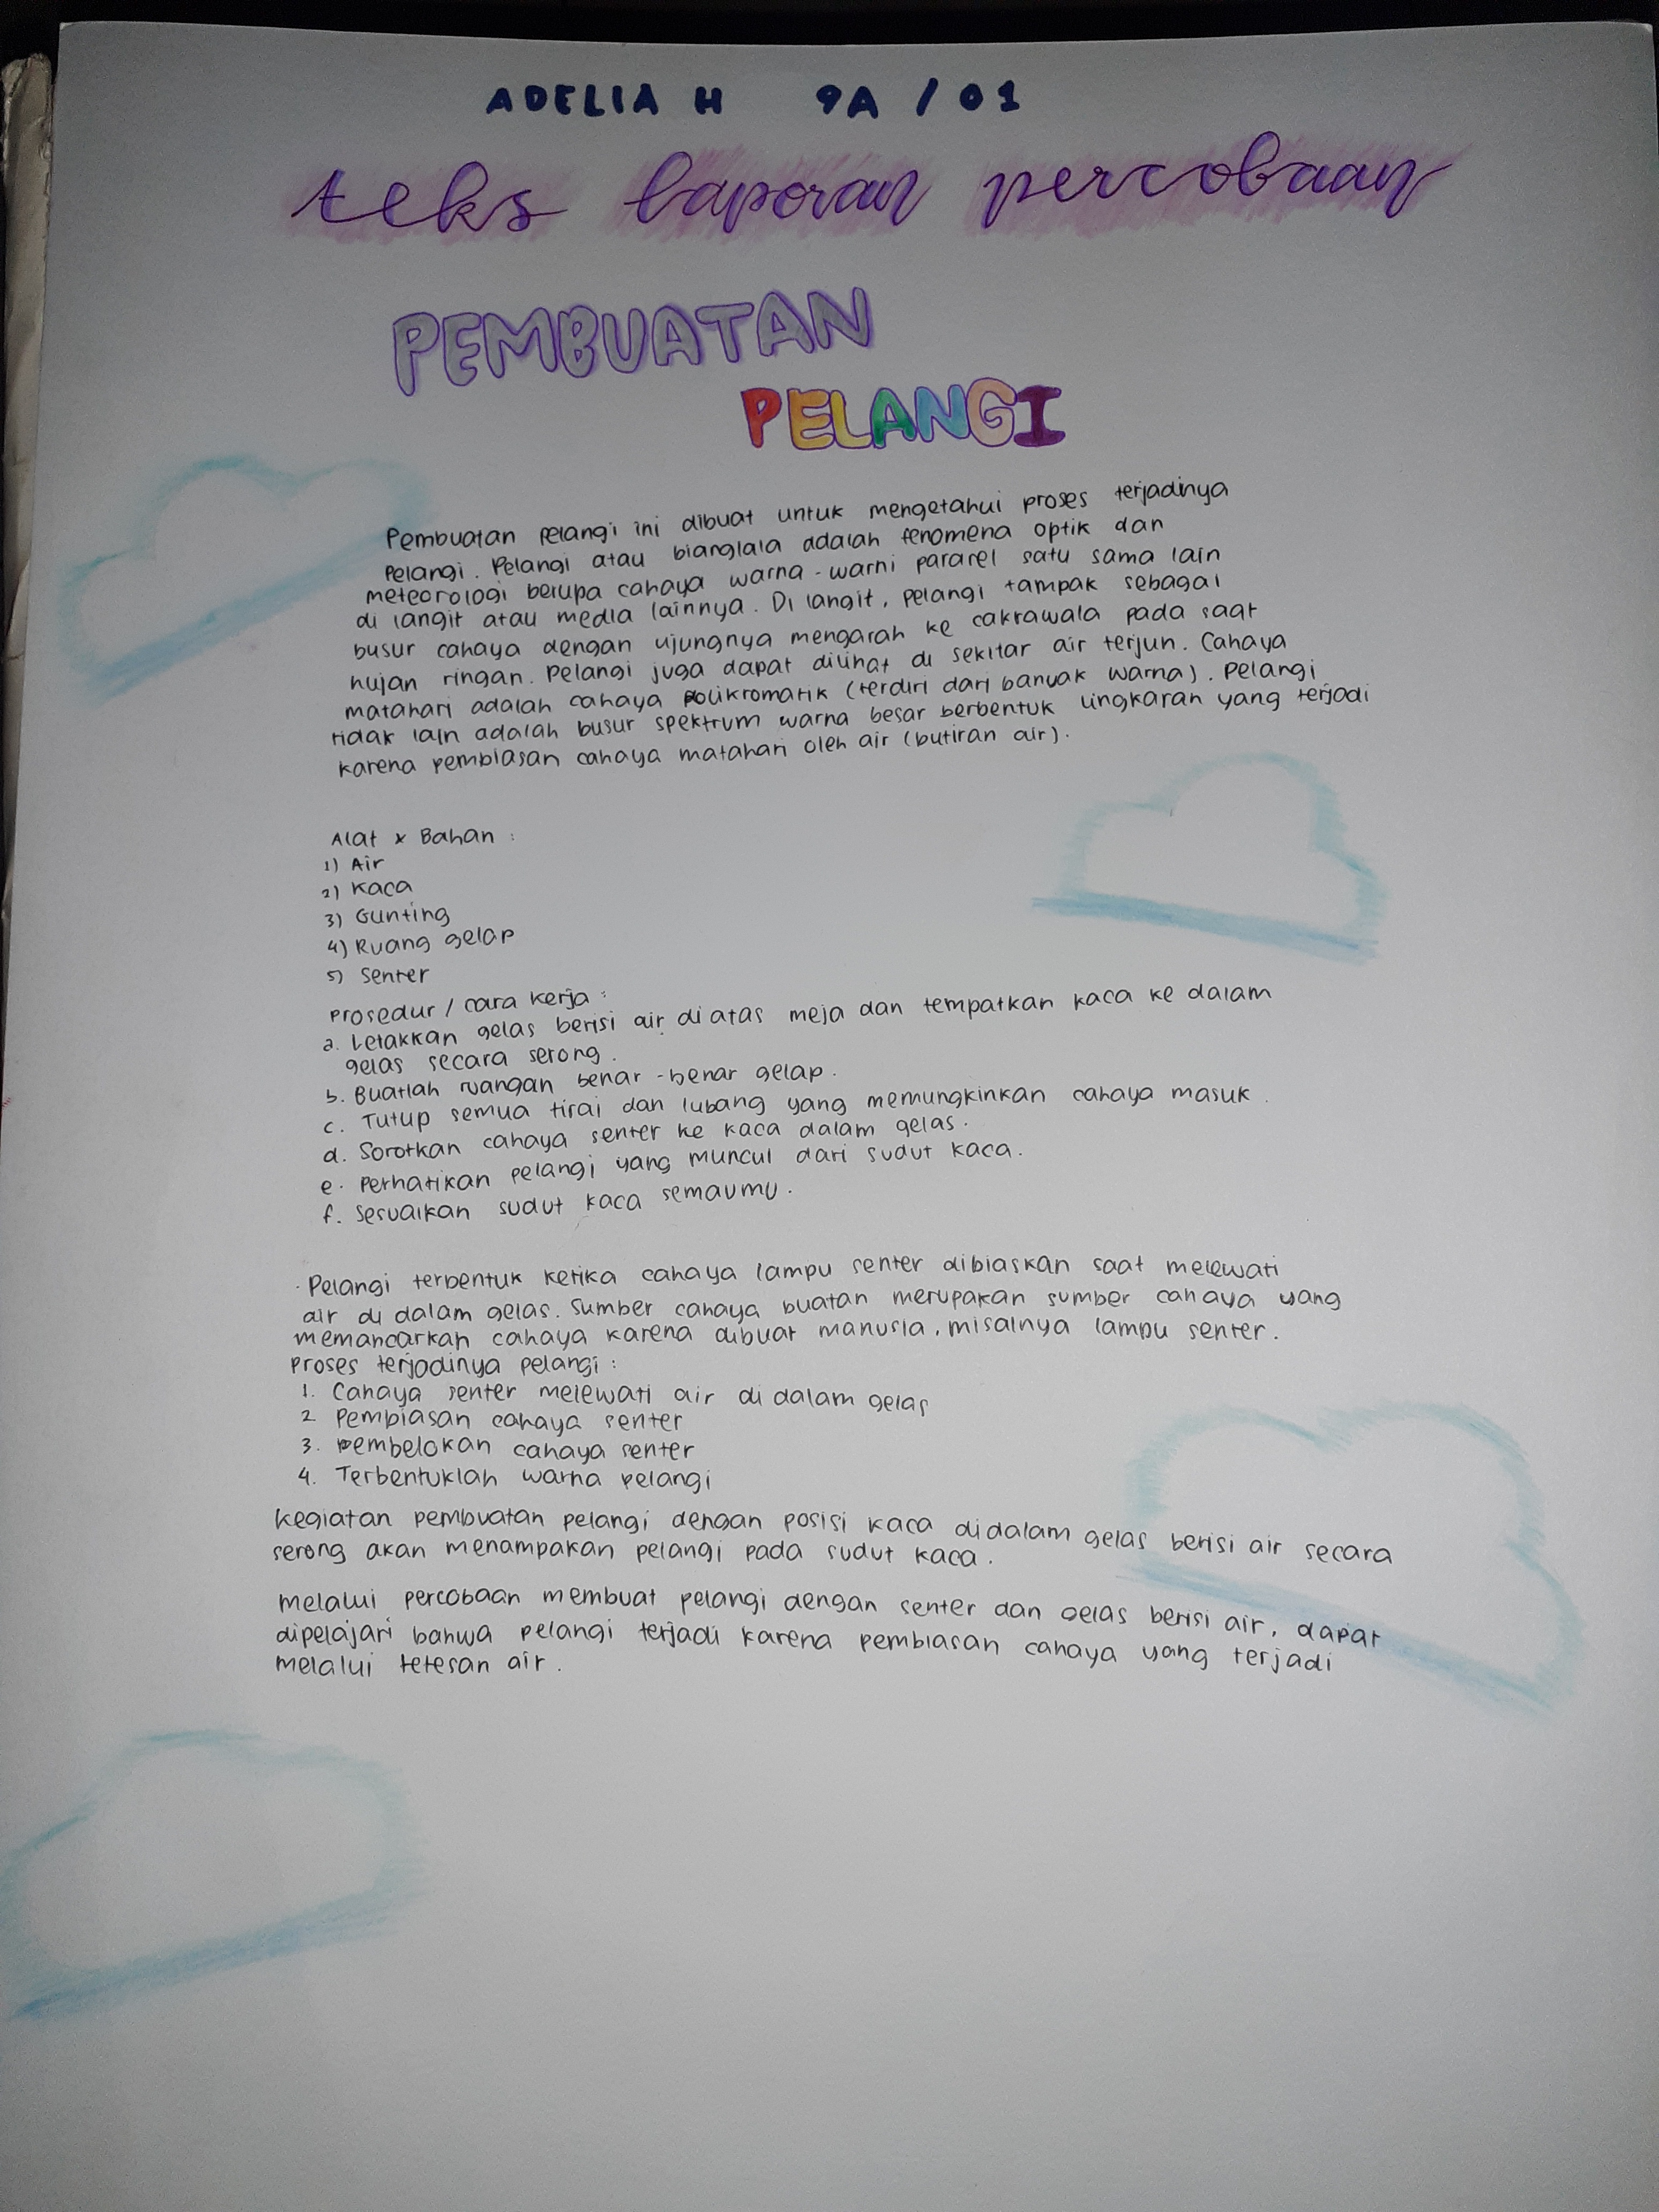 ADELIA H 9A / 01
teks laporan percobaan
PEMBUATAN
PELANGI
Pembuatan pelangi ini dibuat untuk mengetahui proses terjadinya
pelangi. Pelangi atau bianglala adalah fenomena optik dan
meteorologi berupa cahaya warna-warni pararel satu sama lain
di langit atau media lainnya. Di langit, pelangi tampak sebagai
busur cahaya dengan ujungnya mengarah ke cakrawala pada saat
hujan ringan. Pelangi juga dapat dilihat di sekitar air terjun. Cahaya
matahari adalah cahaya polikromatik (terdiri dari banyak warna). Pelangi
tidak lain adalah busur spektrum warna besar berbentuk lingkaran yang terjadi
karena pembiasan cahaya matahari oleh air (butiran air).
Alat & Bahan :
1) Air
2) Kaca
3) Gunting
4) Ruang gelap
5) Senter
Prosedur / cara kerja :
a. Letakkan gelas berisi air di atas meja dan tempatkan kaca ke dalam
gelas secara serong.
b. Buatlah ruangan benar-benar gelap.
c. Tutup semua tirai dan lubang yang memungkinkan cahaya masuk.
d. Sorotkan cahaya senter ke kaca dalam gelas.
e. Perhatikan pelangi yang muncul dari sudut kaca.
f. Sesuaikan sudut kaca semaumu.
Pelangi terbentuk ketika cahaya lampu senter dibiaskan saat melewati
air di dalam gelas. Sumber cahaya buatan merupakan sumber cahaya yang
memancarkan cahaya karena dibuat manusia, misalnya lampu senter.
Proses terjadinya pelangi :
1. Cahaya senter melewati air di dalam gelas
2 Pembiasan cahaya senter
3. Pembelokan cahaya senter
4. Terbentuklah warna pelangi
Kegiatan pembuatan pelangi dengan posisi kaca didalam gelas berisi air secara
serong akan menampakan pelangi pada sudut kaca.
Melalui percobaan membuat pelangi dengan senter dan gelas berisi air, dapat
dipelajari bahwa pelangi terjadi karena pembiasan cahaya yang terjadi
melalui tetesan air.